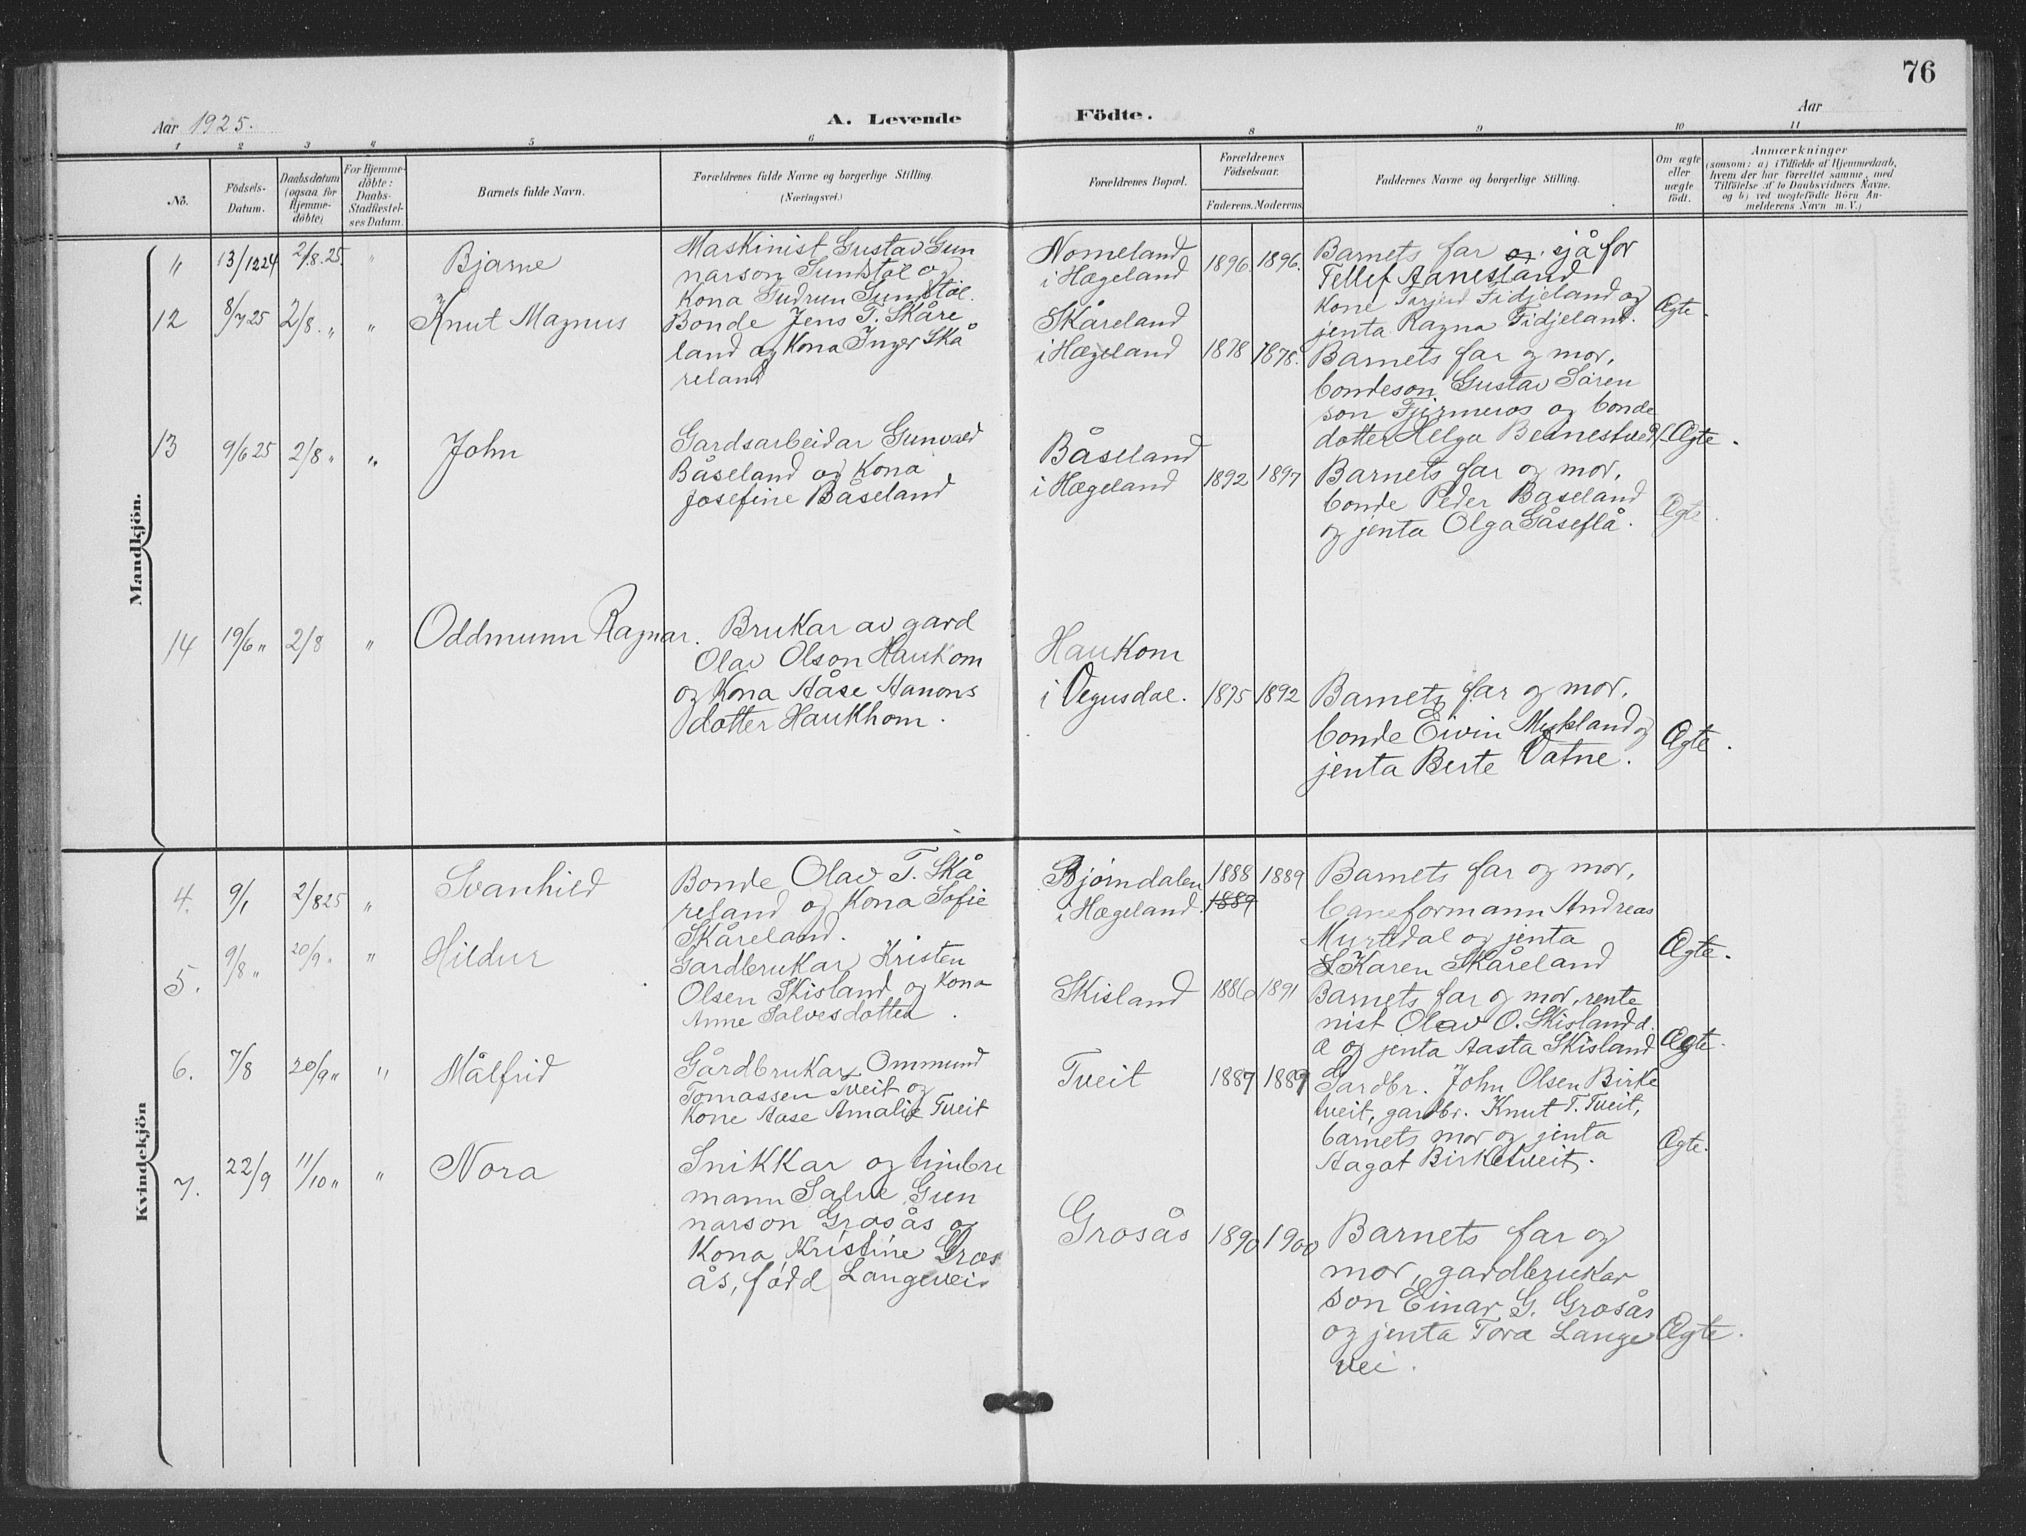 76
Aar 1925.
A. Levende
Födte.
Aar
1 2 3 4 5 6 8 9 10 11
No.
Födsels-Datum.
Daabsdatum (ogsaa for Hjemme-döbte)
For Hjemme-döbte: Daabs-Stadfæstel-ses Datum.
Barnets fulde Navn.
Forældrenes fulde Navne og borgerlige Stilling.
(Næringsvei.)
Forældrenes Bopæl.
Forældrenes Födselsaar.
Faderens. Moderens.
Faddernes Navne og borgerlige Stilling.
Om ægte eller uægte födt.
Anmærkninger
(saasom: a) i Tilfælde af Hjemmedaab,
hvem der har forrettet samme, med
Tilföielse af to Daabsvidners Navne.
og b) ved uægtefödte Börn An-
melderens Navn m. V.)
Mandkjön.
" 13/12 24 2/8.25. " Bjarne
Maskinist Gustav Gun
narson Sundstøl og
Kona Gudrun Sundstøl.
Nomeland
i Hægeland
1896. 1896.
Barnets far sjå for
Tellef Aanesland
Kone Torjer Fidjeland og
jenta Ragna Fidjeland.
Ægte.
12 8/7 25 2/8. " " Knut Magnus
Bonde Jens T. Skåre
land og Kona Inger Skå
reland
Skåreland
i Hægeland
1878 1878.
Barnets far og mor,
bondeson Gustav Sören
son Fjermeros og bonde
dotter Helga Besnestved.
Ægte.
13 9/6 25 2/8 " " John
Gardsarbeidar Gunvald
Båseland og Kona
Josefine Båseland
Båseland
i Hægeland
1892 1897
Barnets far og mor,
bonde Peder Baseland
og jenta Olga Gåseflå.
Ægte.
14 19/6 " 2/8 " Oddmunn Ragnar.
Brukar av gard
Olav Olson Haukom
og Kona Aåse Aanons
dotter Haukhom.
Haukom
i Vegusdal.
1875 1892
Barnets far og mor,
bonde Eivin Mykland og
jenta Berte Vatne.
Ægte.
Kvindekjön
4. 9/1 2/8 25 " Svanhild
Bonde Olav T. Skå
reland og Kona Sofie
Skåreland.
Bjørndalen
i Hægeland.
1888 1889
1889
Barnets far og mor,
baneformann Andreas
Murtedal og jenta
Karen Skåreland
Ægte.
5. 9/8 " 20/9 " " Hildur
Gardbrukar Kristen
Olsen Skisland og Kona
Anne Salvesdotter.
Skisland
1886 1891
Barnets far og mor, rente
nist Olav O. Skisland d.
æ og jenta Aasta Skisland
Ægte.
6. 7/8 20/9 " " Målfrid
Gårdbrukar Ommund
Tomassen Tveit og
Kone Aase Amalie Tveit
Tveit
1887 1889
Gardbr. John Olsen Birke
tveit, gardbr. Knut T. Tveit,
barnets mor og jenta
Aagot Birketveit.
Ægte.
7. 22/9 11/10 " " Nora
Snikkar og timbre
mann Salve Gun
narson Grosås og
Kona, Kristine Gros
ås, født Langevei.
Grosås
1890 1900
Barnets far og
mor, gardbrukar
son Einar G. Grosås
og jenta Tora Lange
vei.
Ægte.